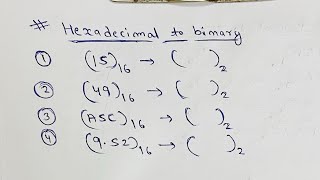 # Hexadecimal to binary
① (15)₁₆ → ( )₂
② (49)₁₆ → ( )₂
③ (A5C)₁₆ → ( )₂
④ (9.52)₁₆ → ( )₂